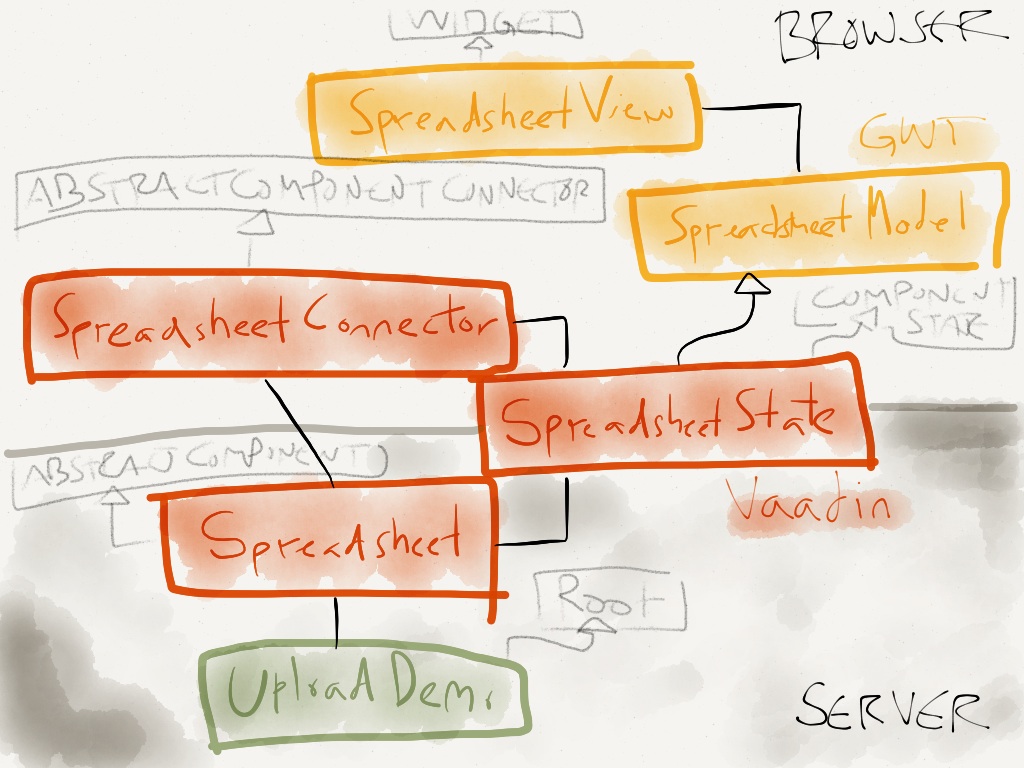 WIDGET
BROWSER
SpreadsheetView
GWT
ABSTRACTCOMPONENTCONNECTOR
Spreadsheet Model
Spreadsheet Connector
COMPONENT
STATE
Spreadsheet State
ABSTRACTCOMPONENT
Vaadin
Spreadsheet
ROOT
Upload Demo
SERVER